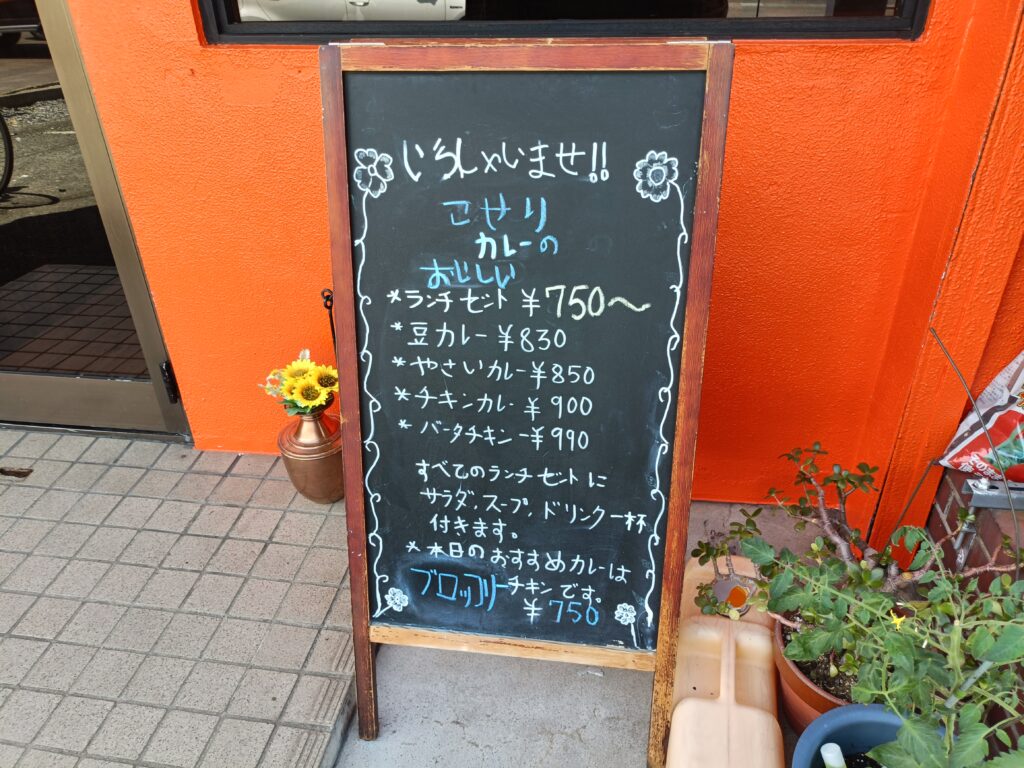 いらしゃいませ!!
こせり
カレーの
おいしい
*ランチセント ¥750〜
*豆カレー ¥830
*やさいカレー¥850
*チキンカレー ¥900
*バータチキン-¥990
すべてのランチセントに
サラダ、スープ、ドリンク一杯
付きます。
*本日のおすすめカレーは
ブロッコリーチキンです。
¥750